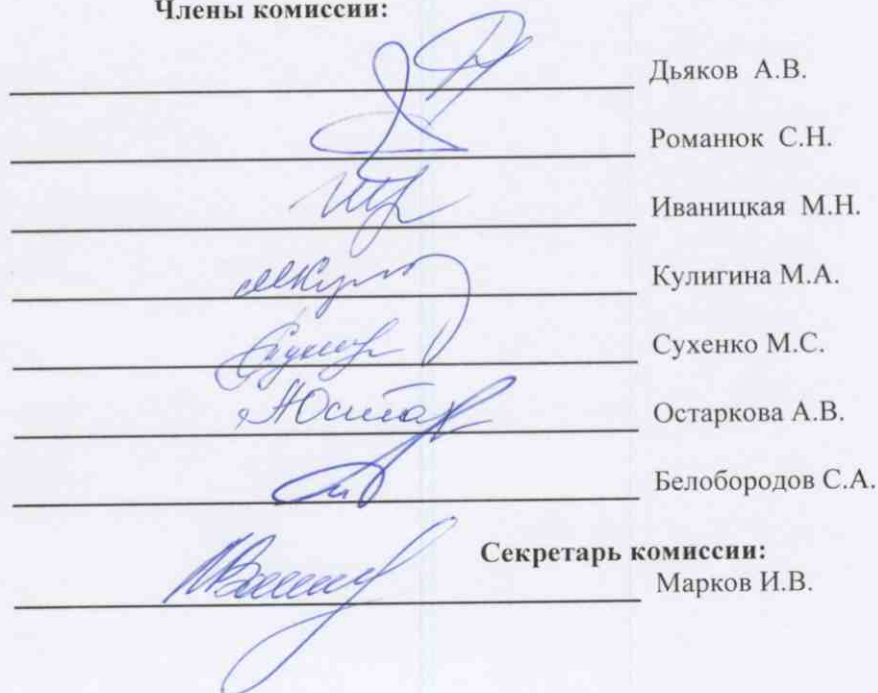 Члены комиссии:
Дьяков А.В.
Романюк С.Н.
Иваницкая М.Н.
Кулигина М.А.
Сухенко М.С.
Остаркова А.В.
Белобородов С.А.
Секретарь комиссии:
Марков И.В.